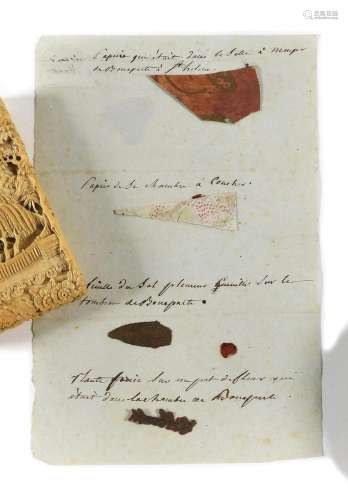 Papier qui était dans la Salle à manger
de Bonaparte à Ste hélène
Papier de la chambre à Coucher.
feuille du Sal pleureur Cueillie Sur le
tombeau de Bonaparte.
Plante Sur un pot de fleur qui
était dans la chambre de Bonaparte.